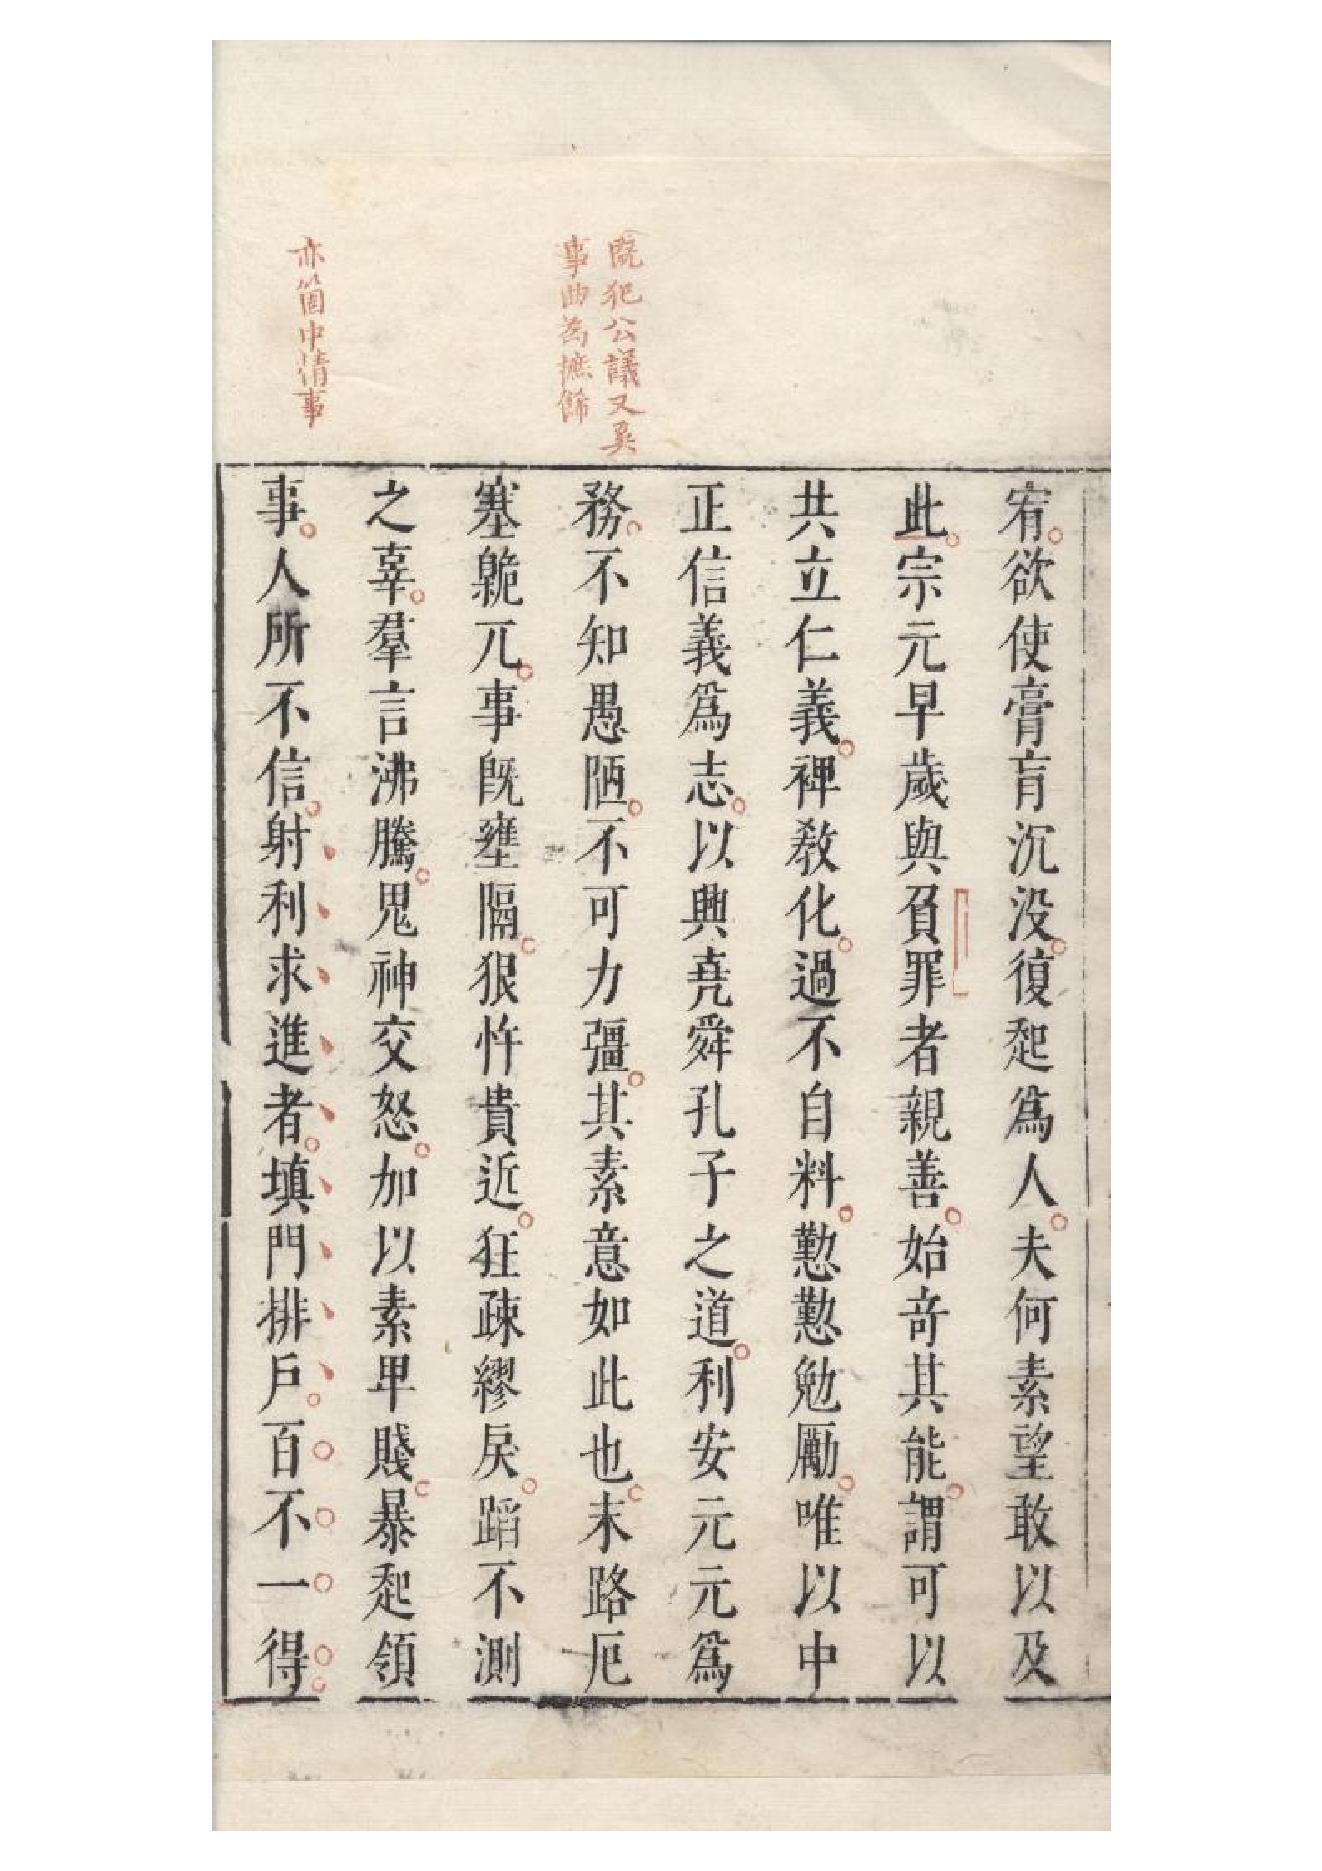 既犯公議又異
事曲為摭餙
亦箇中情事
宥欲使膏肓沉没復起爲人夫何素望敢以及
此宗元早歲與負罪者親善始竒其能謂可以
共立仁義裨敎化過不自料懃懃勉勵唯以中
正信義爲志以興堯舜孔子之道利安元元爲
務不知愚陋不可力彊其素意如此也末路厄
塞臲兀事旣壅隔狠忤貴近狂疎繆戾蹈不測
之辜羣言沸騰鬼神交怒加以素卑賤暴起領
事人所不信射利求進者塡門排戶百不一得